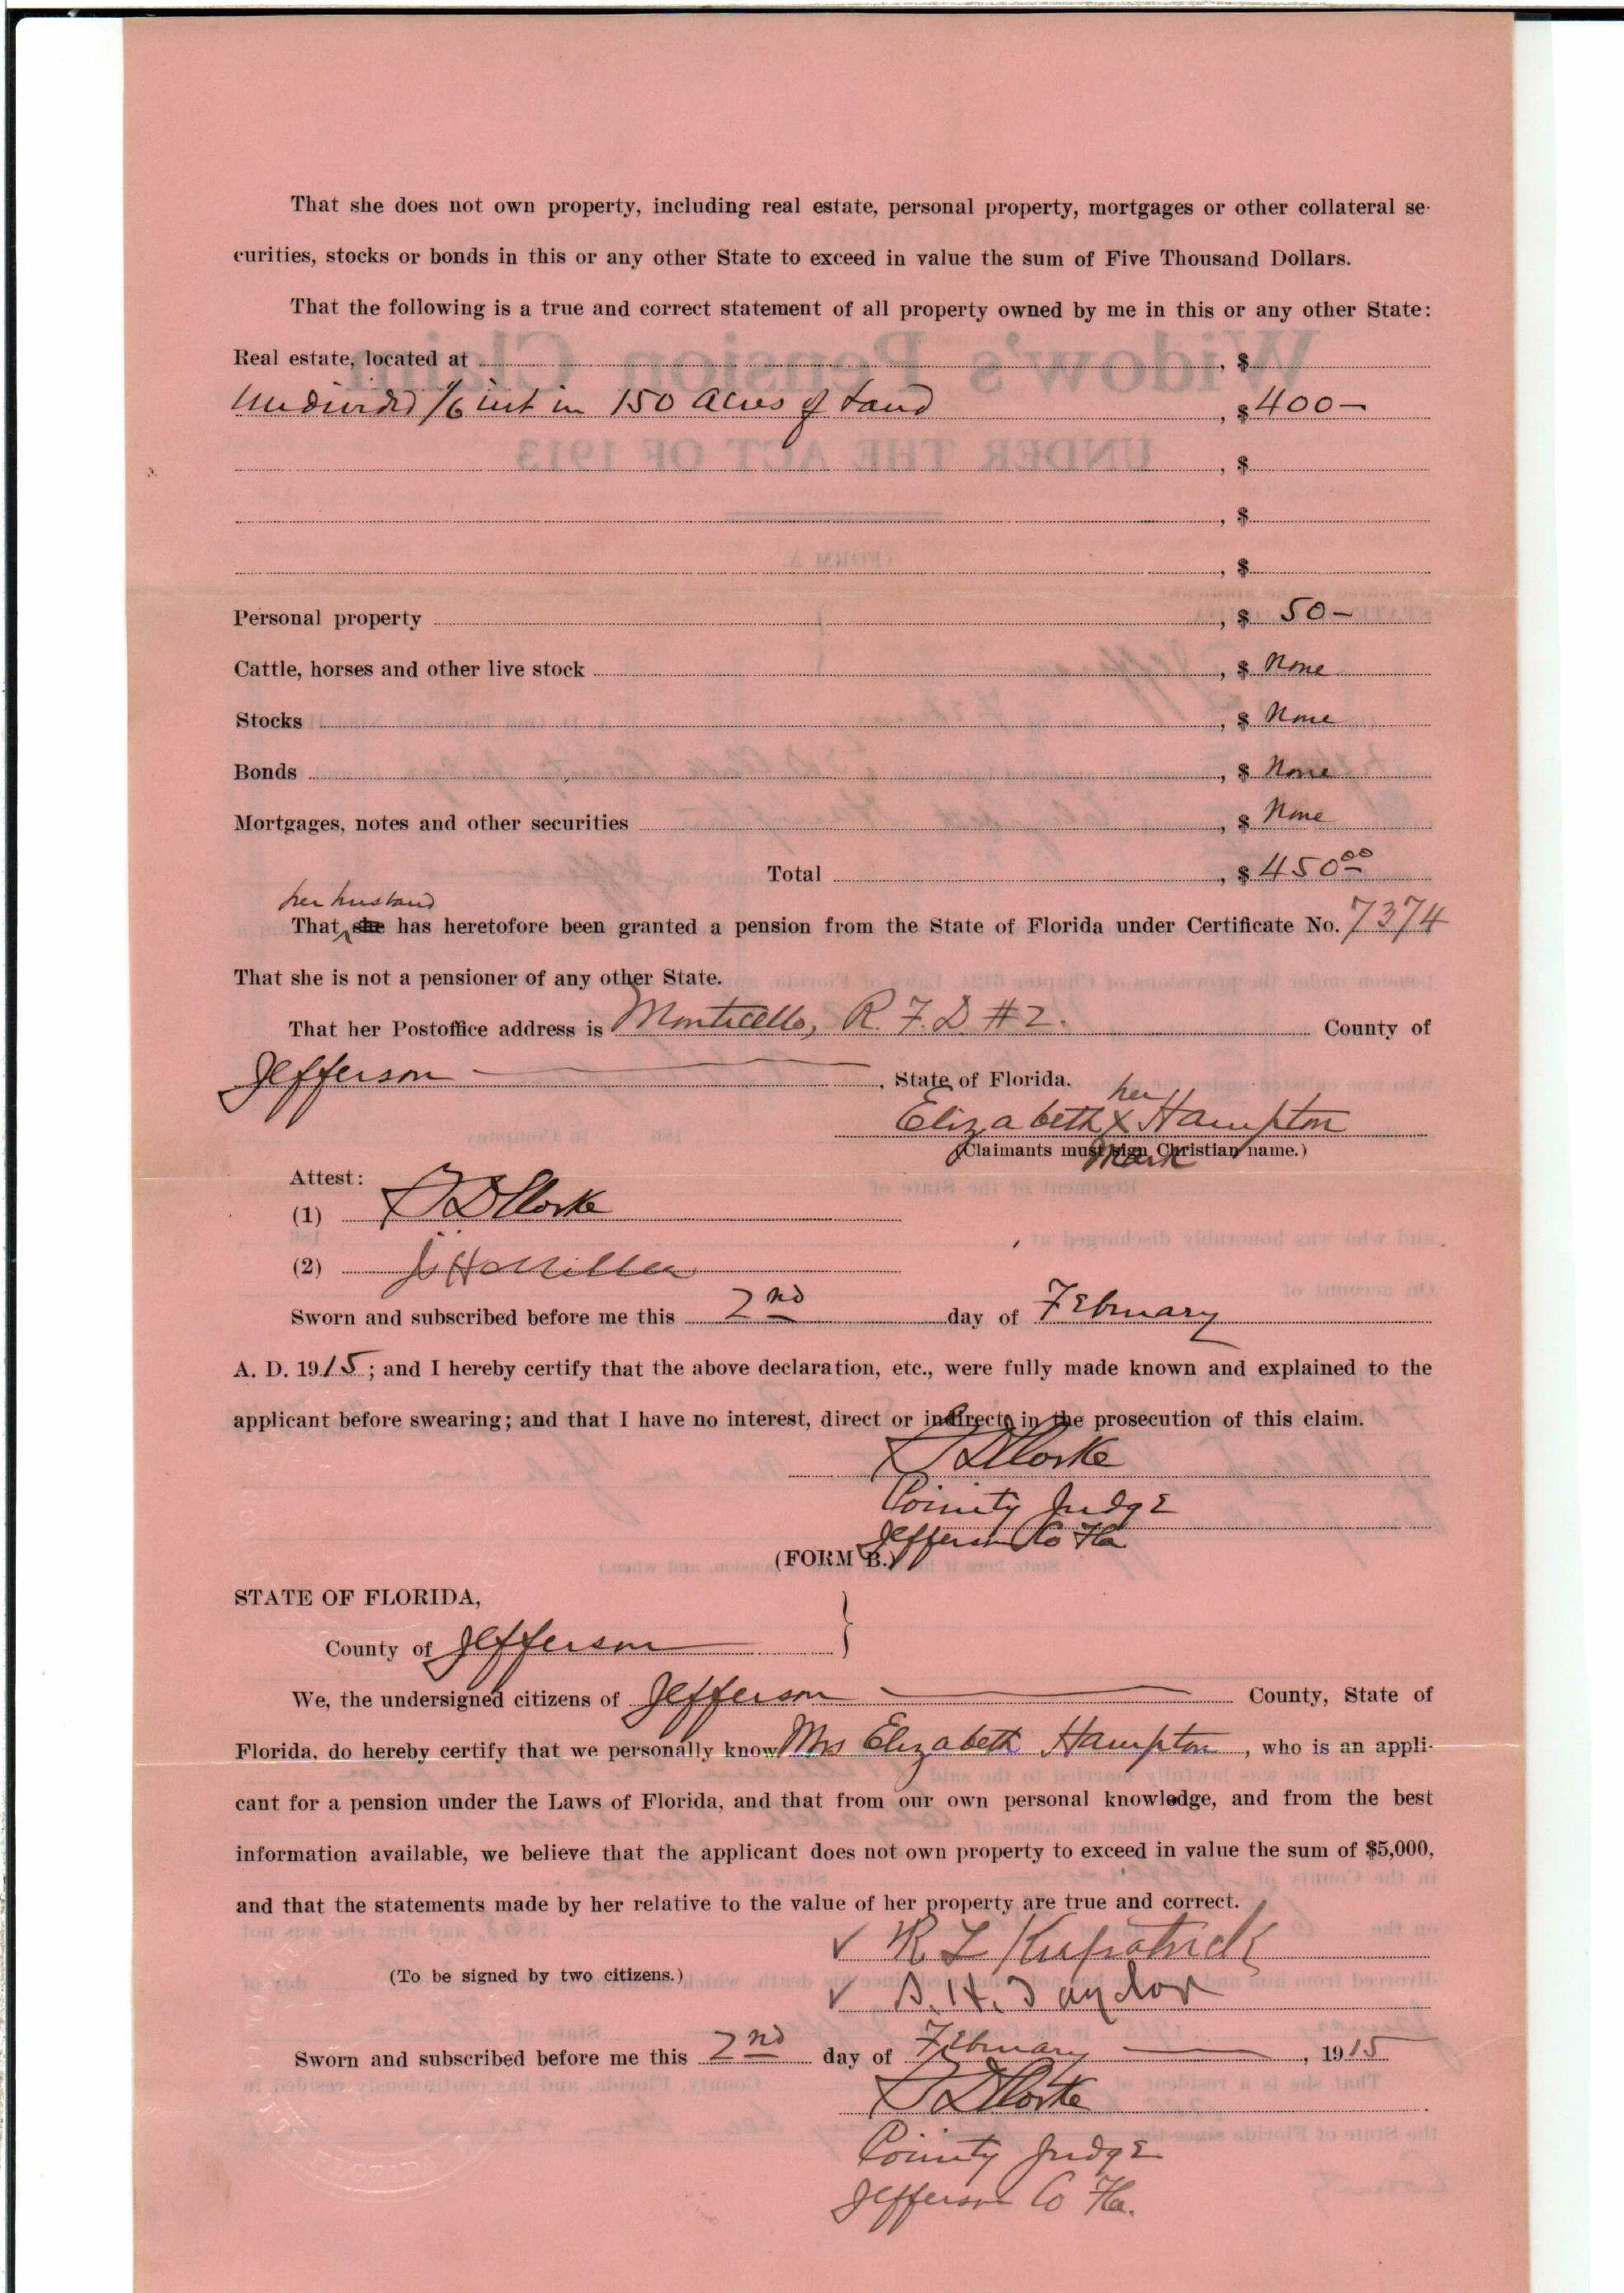 That she does not own property, including real estate, personal property, mortgages or other collateral se-
curities, stocks or bonds in this or any other State to exceed in value the sum of Five Thousand Dollars.
That the following is a true and correct statement of all property owned by me in this or any other State:
Real estate, located at , $
Undivided 1/6 int in 150 Acres of Land , $ 400-
, $
, $
, $
Personal property , $ 50-
Cattle, horses and other live stock , $ None
Stocks , $ None
Bonds , $ None
Mortgages, notes and other securities , $ None
Total , $ 450 00
her husband
That she has heretofore been granted a pension from the State of Florida under Certificate No. 7374
That she is not a pensioner of any other State.
That her Postoffice address is Monticello, R. F. D. #2. County of
Jefferson , State of Florida.
her
Elizabeth X Hampton
(Claimants must sign Christian name.)
mark
Attest:
(1)
(2)
Sworn and subscribed before me this 2nd day of February
A. D. 1915; and I hereby certify that the above declaration, etc., were fully made known and explained to the
applicant before swearing; and that I have no interest, direct or indirect, in the prosecution of this claim.
County Judge
Jefferson Co Fla
(FORM B.)
STATE OF FLORIDA,
County of Jefferson }
We, the undersigned citizens of Jefferson County, State of
Florida, do hereby certify that we personally know Mrs Elizabeth Hampton, who is an appli-
cant for a pension under the Laws of Florida, and that from our own personal knowledge, and from the best
information available, we believe that the applicant does not own property to exceed in value the sum of $5,000,
and that the statements made by her relative to the value of her property are true and correct.
R L Kirpatrick
(To be signed by two citizens.)
Taylor
Sworn and subscribed before me this 2nd day of February , 1915
County Judge
Jefferson Co Fla.